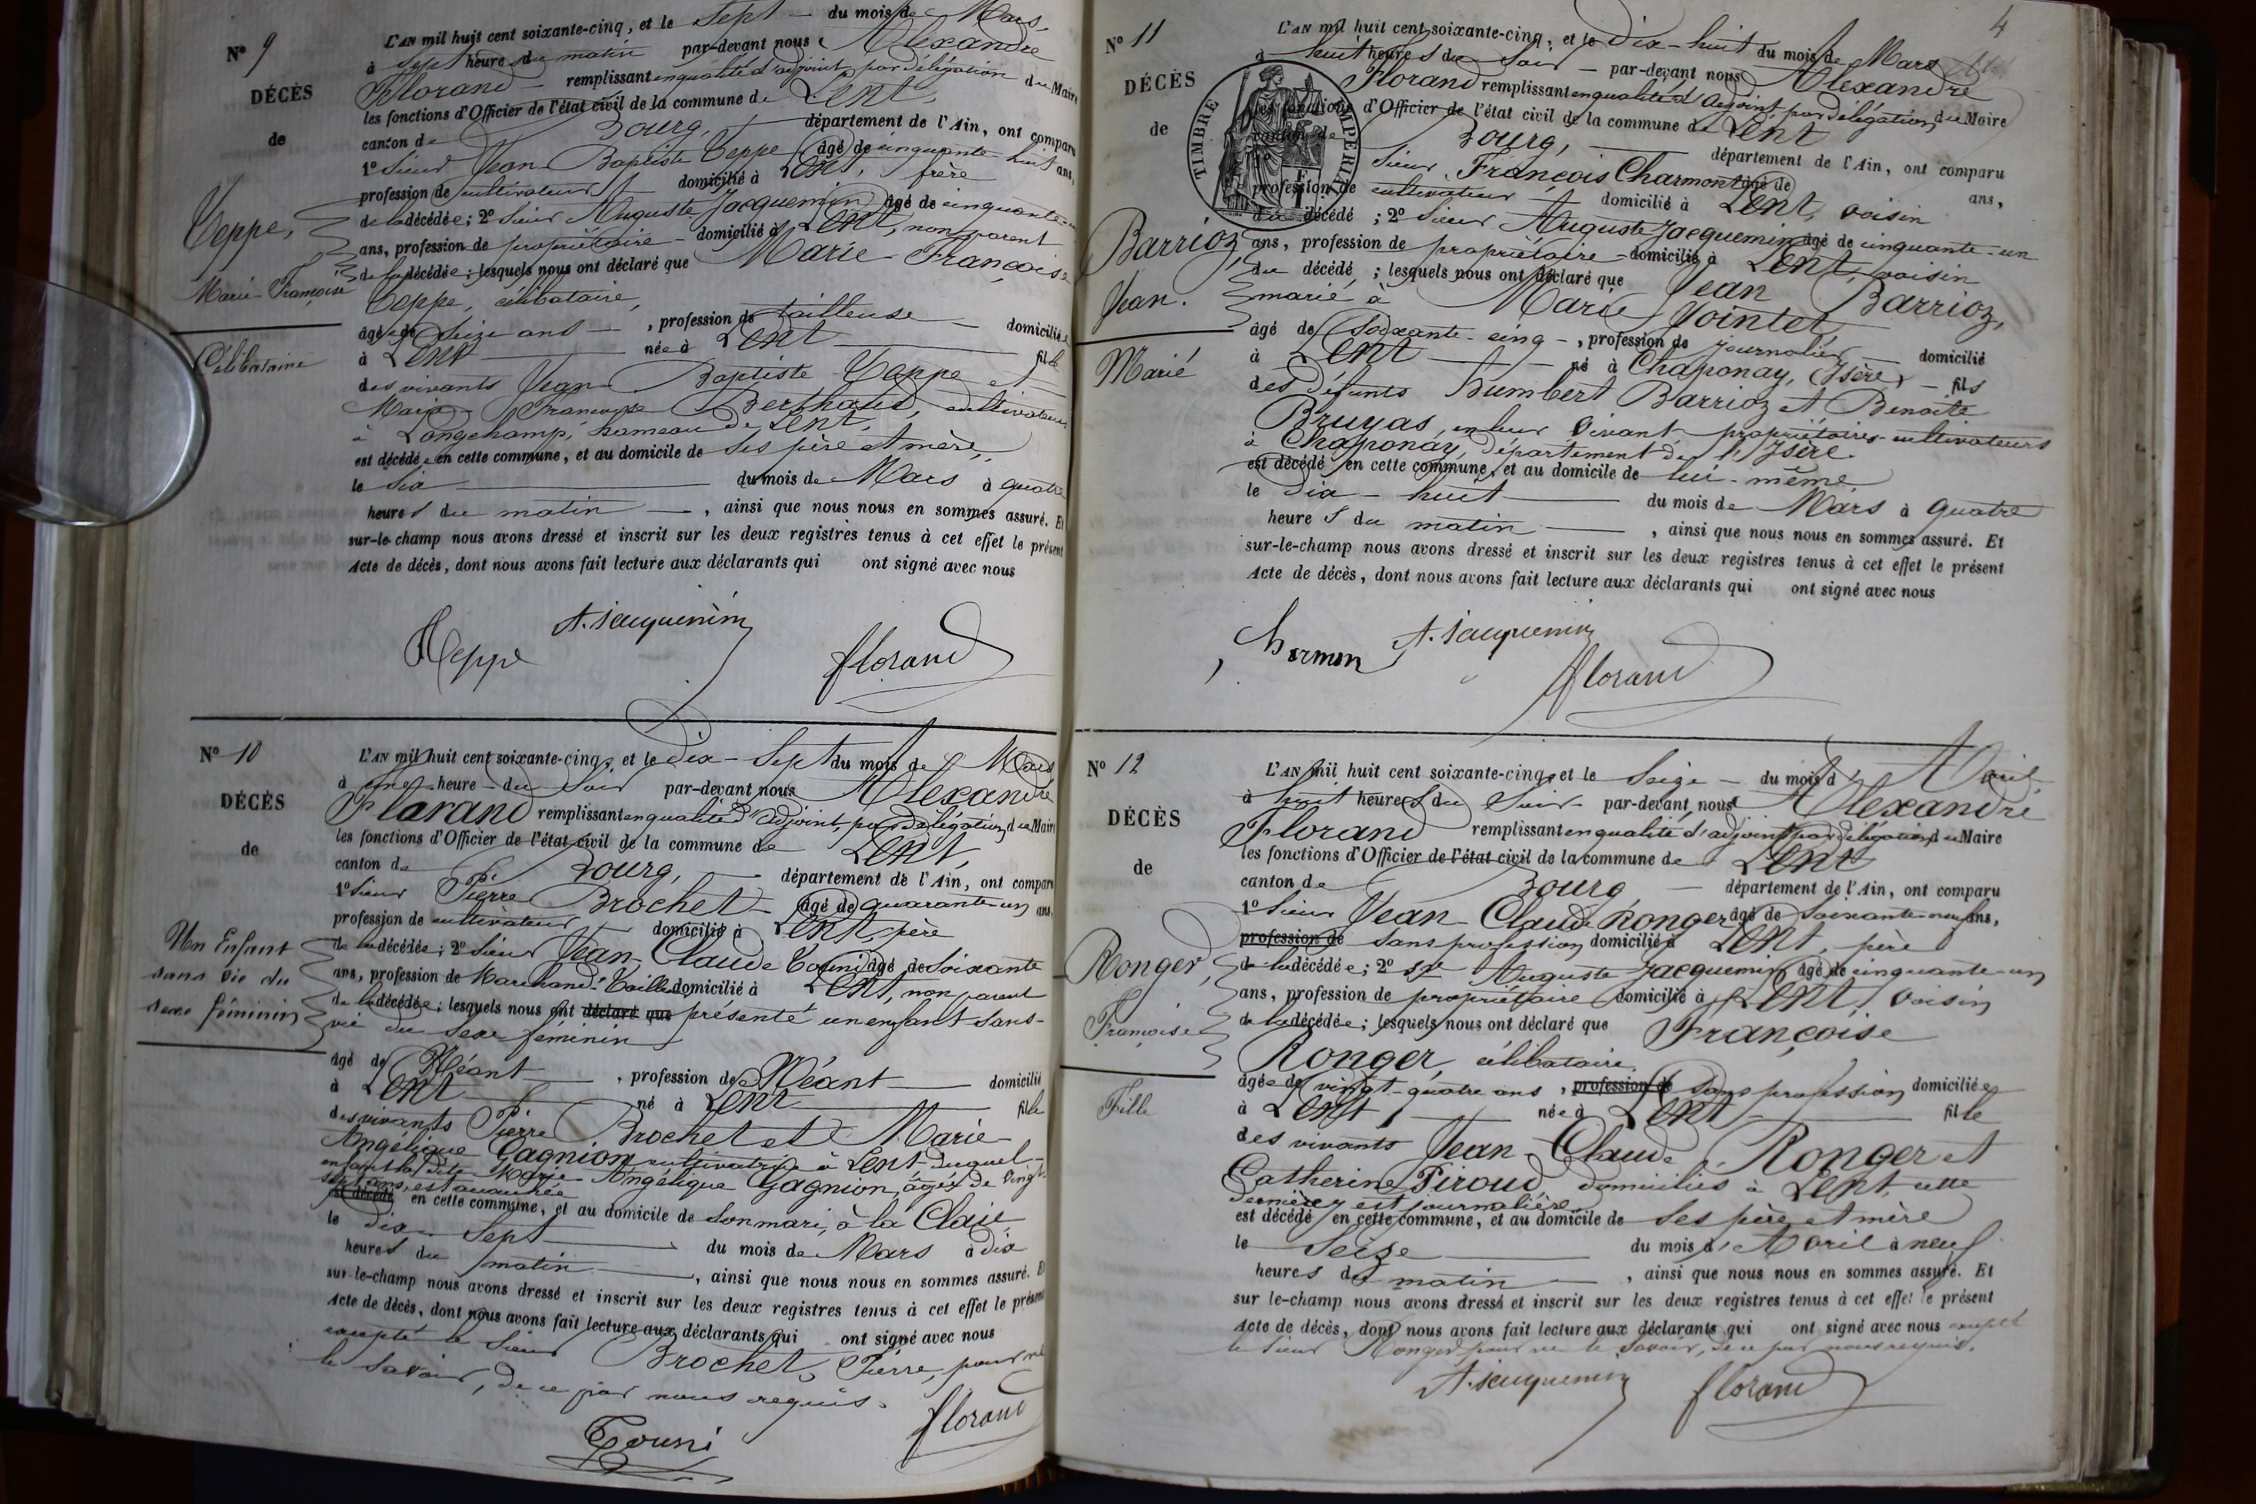 N° 9
DÉCÈS
de
Teppe,
Marie-Françoise
Célibataire
L'AN mil huit cent soixante-cinq, et le Sept du mois de Mars,
à Sept heures du matin par-devant nous Alexandre
Florand remplissant en qualité d'adjoint, par délégation du Maire
les fonctions d'Officier de l'état civil de la commune de Lent,
canton de Bourg, département de l'Ain, ont comparu
1° Sieur Jean Baptiste Teppe âgé de cinquante-huit ans,
profession de cultivateur domicilié à Lent, frère
de la décédée; 2° Sieur Auguste Jacquemin âgé de cinquante-un
ans, profession de propriétaire domicilié à Lent, non parent
de la décédée; lesquels nous ont déclaré que Marie-Françoise
Teppe, célibataire,
âgée de Seize ans, profession de tailleuse domiciliée
à Lent née à Lent fille
des vivants Jean Baptiste Teppe et
Marie Françoise Berthaud, cultivateurs
à Longchamp, hameau de Lent,
est décédée en cette commune, et au domicile de Ses père et mère,
le Six du mois de Mars à quatre
heures du matin, ainsi que nous nous en sommes assuré. Et
sur-le-champ nous avons dressé et inscrit sur les deux registres tenus à cet effet le présent
Acte de décès, dont nous avons fait lecture aux déclarants qui ont signé avec nous
Teppe A. Jacquemin florand
N° 10
DÉCÈS
de
Un Enfant
sans vie du
sexe féminin
L'AN mil huit cent soixante-cinq, et le Dix-Sept du mois de Mars
à une heure du Soir par-devant nous Alexandre
Florand remplissant en qualité d'adjoint, par délégation du Maire
les fonctions d'Officier de l'état civil de la commune de Lent,
canton de Bourg, département de l'Ain, ont comparu
1° Sieur Pierre Brochet âgé de quarante-un ans,
profession de cultivateur domicilié à Lent, père
de la décédée; 2° Sieur Jean-Claude Touni âgé de Soixante
ans, profession de Marchand-Tailleur domicilié à Lent, non parent
de la décédée; lesquels nous ont déclaré que présenté un enfant Sans-
vie du Sexe féminin
âgé de Néant, profession de Néant domicilié
à Lent né à Lent fille
des vivants Pierre Brochet et Marie
Angélique Gagnion cultivatrice à Lent duquel
enfant la dite Marie Angélique Gagnion, âgée de vingt-
sept ans, est accouchée
est décédé en cette commune, et au domicile de Son mari, à la Claie
le Dix-Sept du mois de Mars à dix
heures du matin, ainsi que nous nous en sommes assuré. Et
sur-le-champ nous avons dressé et inscrit sur les deux registres tenus à cet effet le présent
Acte de décès, dont nous avons fait lecture aux déclarants qui ont signé avec nous
excepté le Sieur Brochet, Pierre, pour ne
le Savoir, de ce par nous requis.
Touni florand
4
N° 11
DÉCÈS
de
Barrioz,
Jean.
Marié
TIMBRE IMPERIAL
L'AN mil huit cent soixante-cinq, et le Dix-huit du mois de Mars
à huit heures du Soir par-devant nous Alexandre
Florand remplissant en qualité d'adjoint, par délégation du Maire
les fonctions d'Officier de l'état civil de la commune de Lent
canton de Bourg, département de l'Ain, ont comparu
Sieur François Charmont âgé de ans,
profession de cultivateur domicilié à Lent, voisin
du décédé; 2° Sieur Auguste Jacquemin âgé de cinquante-un
ans, profession de propriétaire domicilié à Lent, voisin
du décédé; lesquels nous ont déclaré que Jean Barrioz,
marié à Marie Jointet,
âgé de Soixante-cinq, profession de journalier domicilié
à Lent né à Chaponay, (Isère) fils
des Défunts Humbert Barrioz et Benoîte
Bruyas, en leur vivant propriétaires-cultivateurs
à Chaponay, département de l'Isère.
est décédé en cette commune, et au domicile de lui-même
le Dix-huit du mois de Mars à quatre
heures du matin, ainsi que nous nous en sommes assuré. Et
sur-le-champ nous avons dressé et inscrit sur les deux registres tenus à cet effet le présent
Acte de décès, dont nous avons fait lecture aux déclarants qui ont signé avec nous
A. Jacquemin florand
N° 12
DÉCÈS
de
Ronger,
Françoise
Fille
L'AN mil huit cent soixante-cinq, et le Seize du mois d'Avril
à huit heures du Soir par-devant nous Alexandre
Florand remplissant en qualité d'adjoint par délégation du Maire
les fonctions d'Officier de l'état civil de la commune de Lent
canton de Bourg département de l'Ain, ont comparu
1° Sieur Jean-Claude Ronger âgé de soixante-neuf ans,
profession de sans profession domicilié à Lent, père
de la décédée; 2° Sr Auguste Jacquemin âgé de cinquante-un
ans, profession de propriétaire domicilié à Lent, voisin
de la décédée; lesquels nous ont déclaré que Françoise
Ronger, célibataire,
âgée de vingt-quatre ans, profession de Sans profession domiciliée
à Lent, née à Lent fille
des vivants Jean-Claude Ronger et
Catherine Piroud domiciliés à Lent, cette
dernière est journalière
est décédé en cette commune, et au domicile de Ses père et mère
le Seize du mois d'Avril à neuf
heures du matin, ainsi que nous nous en sommes assuré. Et
sur le-champ nous avons dressé et inscrit sur les deux registres tenus à cet effet le présent
Acte de décès, dont nous avons fait lecture aux déclarants qui ont signé avec nous excepté
le Sieur Ronger pour ne le Savoir, de ce par nous requis.
A. Jacquemin florand